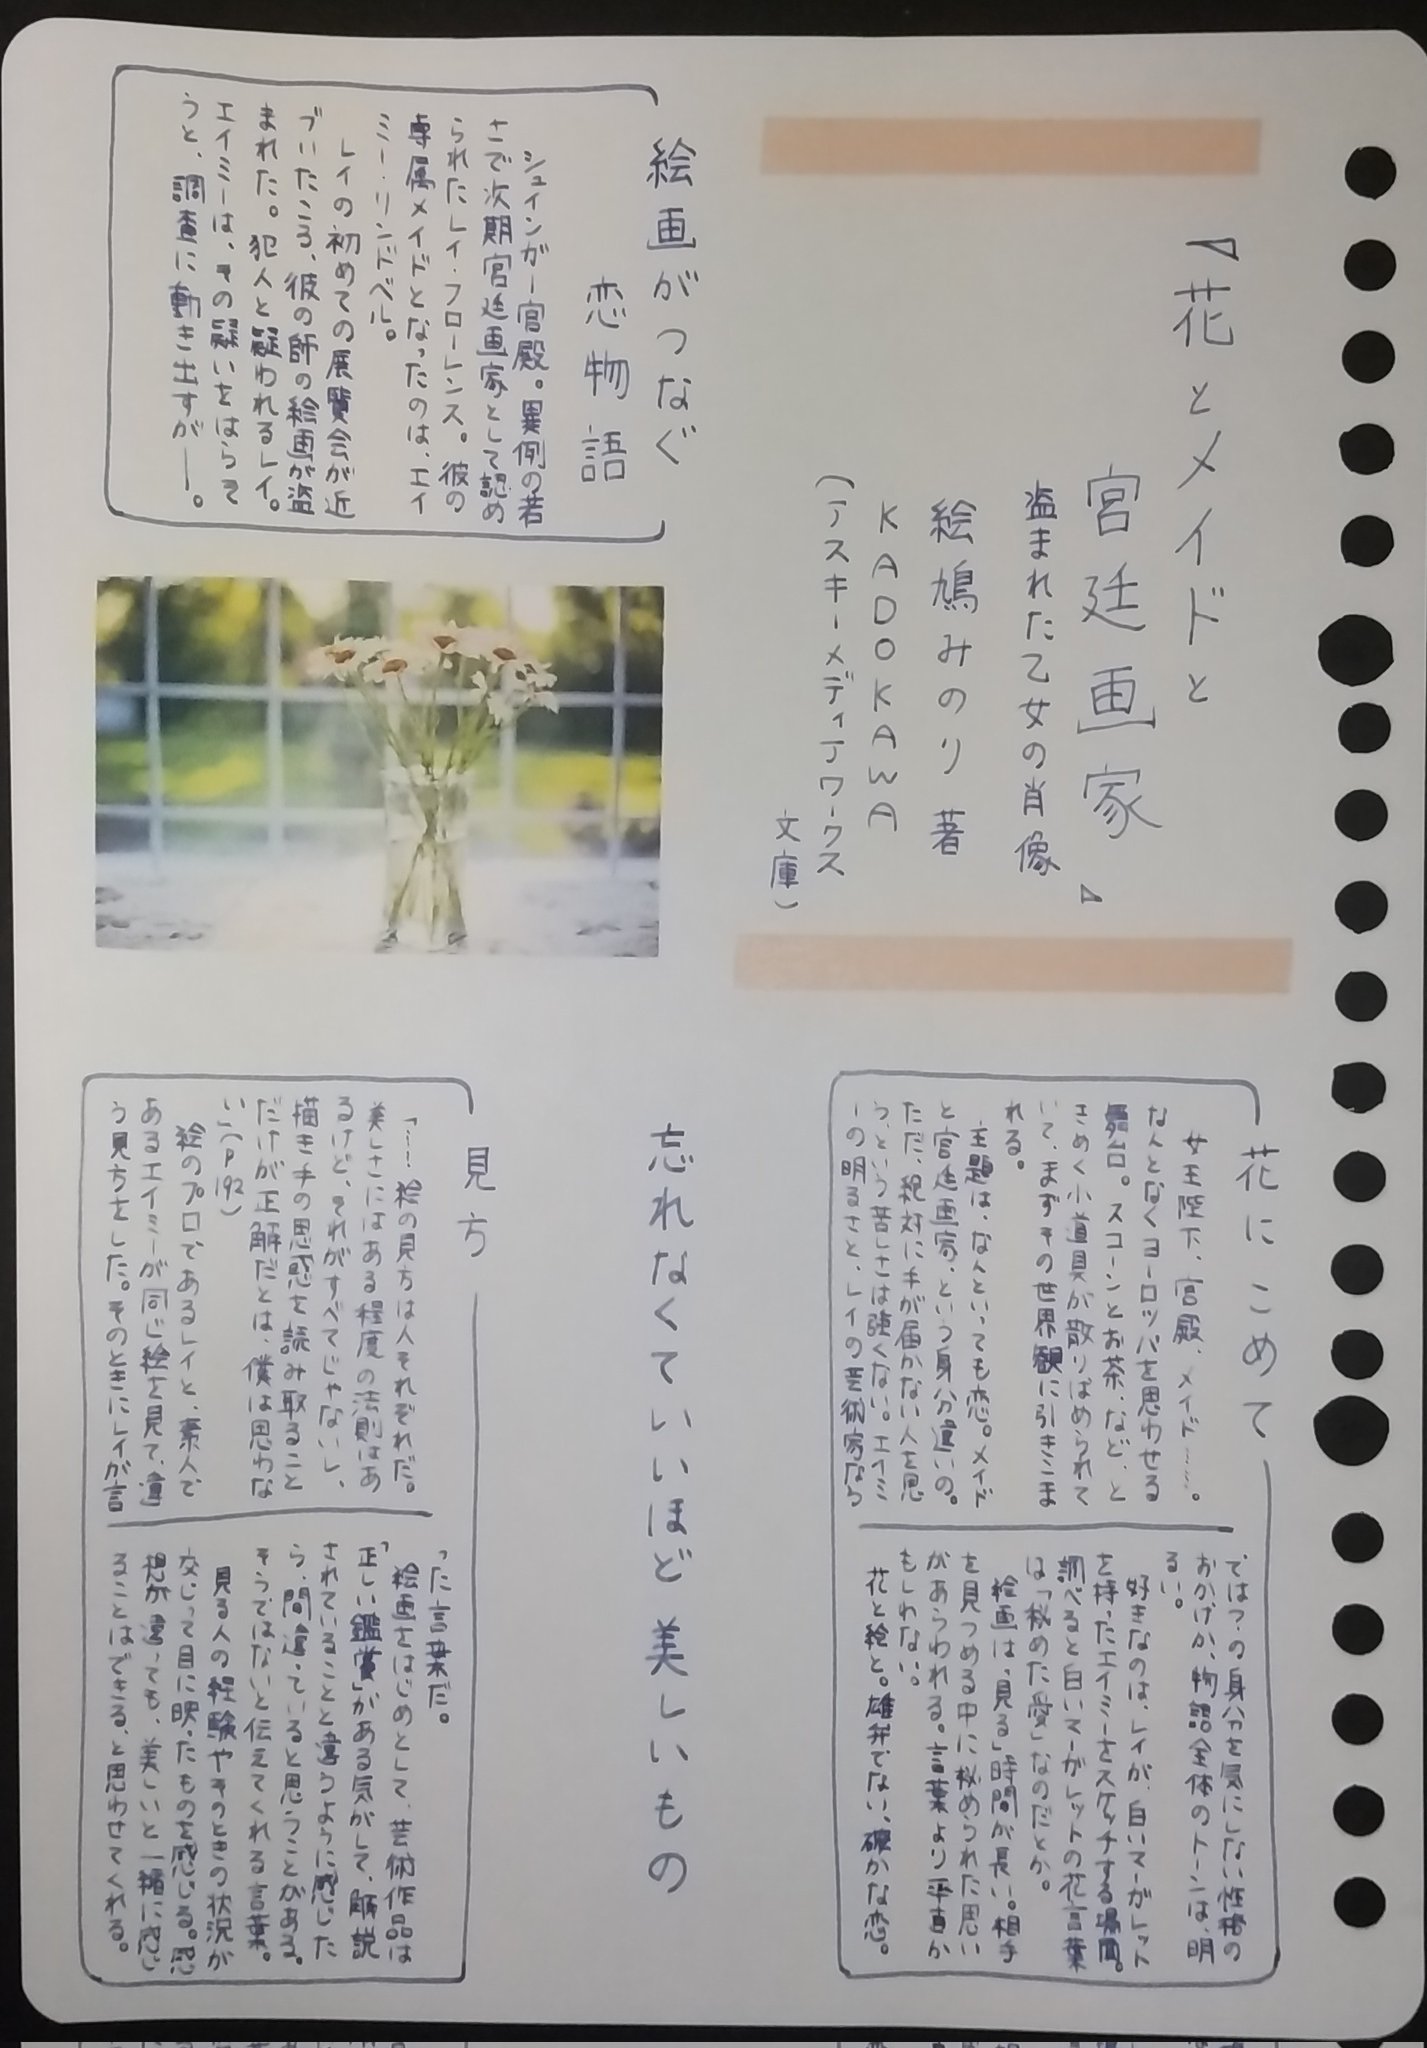 『花とメイドと
宮廷画家』
盗まれた乙女の肖像
絵鳩みのり 著
KADOKAWA
(アスキーメディアワークス
文庫)
絵画がつなぐ
恋物語
シュインガー宮殿。異例の若
さで次期宮廷画家として認め
られたレイ・フローレンス。彼の
専属メイドとなったのは、エイ
ミー・リンドベル。
レイの初めての展覧会が近
づいたころ、彼の師の絵画が盗
まれた。犯人と疑われるレイ。
エイミーは、その疑いをはらそ
うと、調査に動き出すが――。
花にこめて
女王陛下、宮殿、メイド……。
なんとなくヨーロッパを思わせる
舞台。スコーンとお茶、など、と
きめく小道具が散りばめられて
いて、まずその世界観に引きこま
れる。
主題は、なんといっても恋。メイド
と宮廷画家、という身分違いの。
ただ、絶対に手が届かない人を思
う、という苦しさは強くない。エイミ
ーの明るさと、レイの芸術家なら
では?の身分を気にしない性格の
おかげか、物語全体のトーンは、明
るい。
好きなのは、レイが、白いマーガレット
を持ったエイミーをスケッチする場面。
調べると白いマーガレットの花言葉
は「秘めた愛」なのだとか。
絵画は、「見る」時間が長い。相手
を見つめる中に秘められた思い
があらわれる。言葉より率直か
もしれない。
花と絵と。雄弁でない、確かな恋。
忘れなくていいほど美しいもの
見方
「……絵の見方は人それぞれだ。
美しさにはある程度の法則はあ
るけど、それがすべてじゃないし、
描き手の思惑を読み取ること
だけが正解だとは、僕は思わな
い」(P192)
絵のプロであるレイと、素人で
あるエイミーが同じ絵を見て、違
う見方をした。そのときにレイが言
った言葉だ。
絵画をはじめとして、芸術作品は
「正しい鑑賞」がある気がして、解説
されていることと違うように感じた
ら、間違っていると思うことがある。
そうではないと伝えてくれる言葉。
見る人の経験やそのときの状況が
交じって目に映ったものを感じる。感
想が違っても、美しいと一緒に感じ
ることはできる、と思わせてくれる。